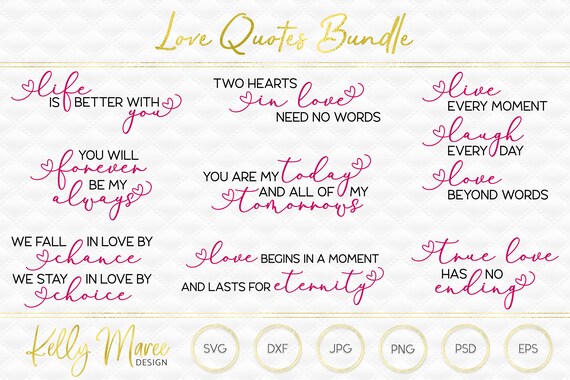 Love Quotes Bundle
life
IS BETTER WITH
you
TWO HEARTS
in love
NEED NO WORDS
live
EVERY MOMENT
laugh
EVERY DAY
love
BEYOND WORDS
YOU WILL
forever
BE MY
always
YOU ARE MY today
AND ALL OF MY
tomorrows
WE FALL IN LOVE BY
chance
WE STAY IN LOVE BY
choice
love BEGINS IN A MOMENT
AND LASTS FOR eternity
true love
HAS NO
ending
Kelly Maree
DESIGN
SVG
DXF
JPG
PNG
PSD
EPS